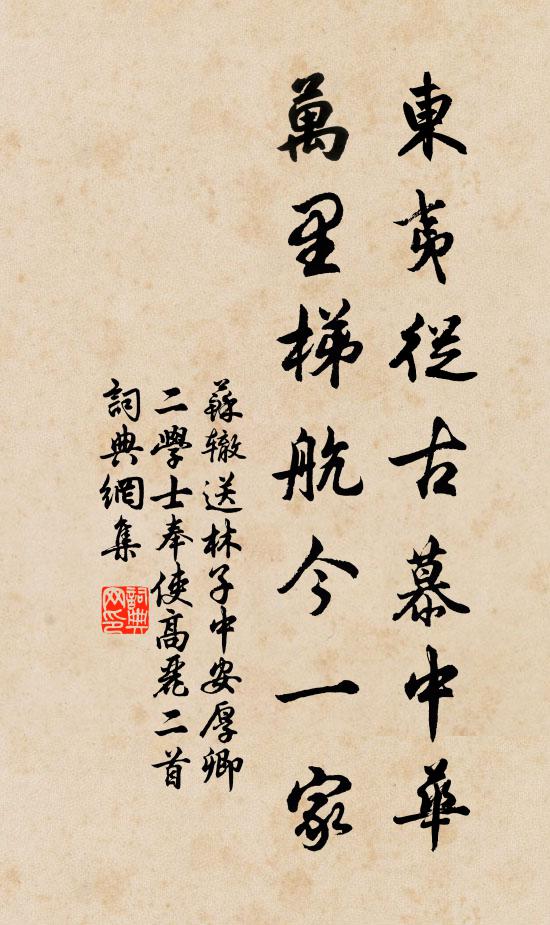 東夷從古慕中華
萬里梯航今一家
蘇轍送林子中安厚卿
二學士奉使高麗二首
詞典網集
詞典
网印